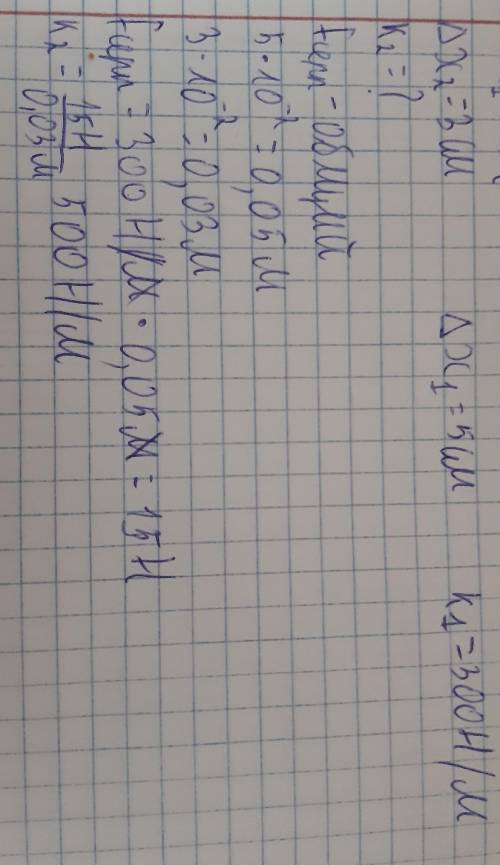 Δx₂ = 3 см Δx₁ = 5 см k₁ = 300 Н/м
k₂ = ?
Fупр - общий
5·10⁻² = 0,05 м
3·10⁻² = 0,03 м
Fупр = 300 Н/м · 0,05 м = 15 Н
k₂ = 15Н/0,03м 500 Н/м